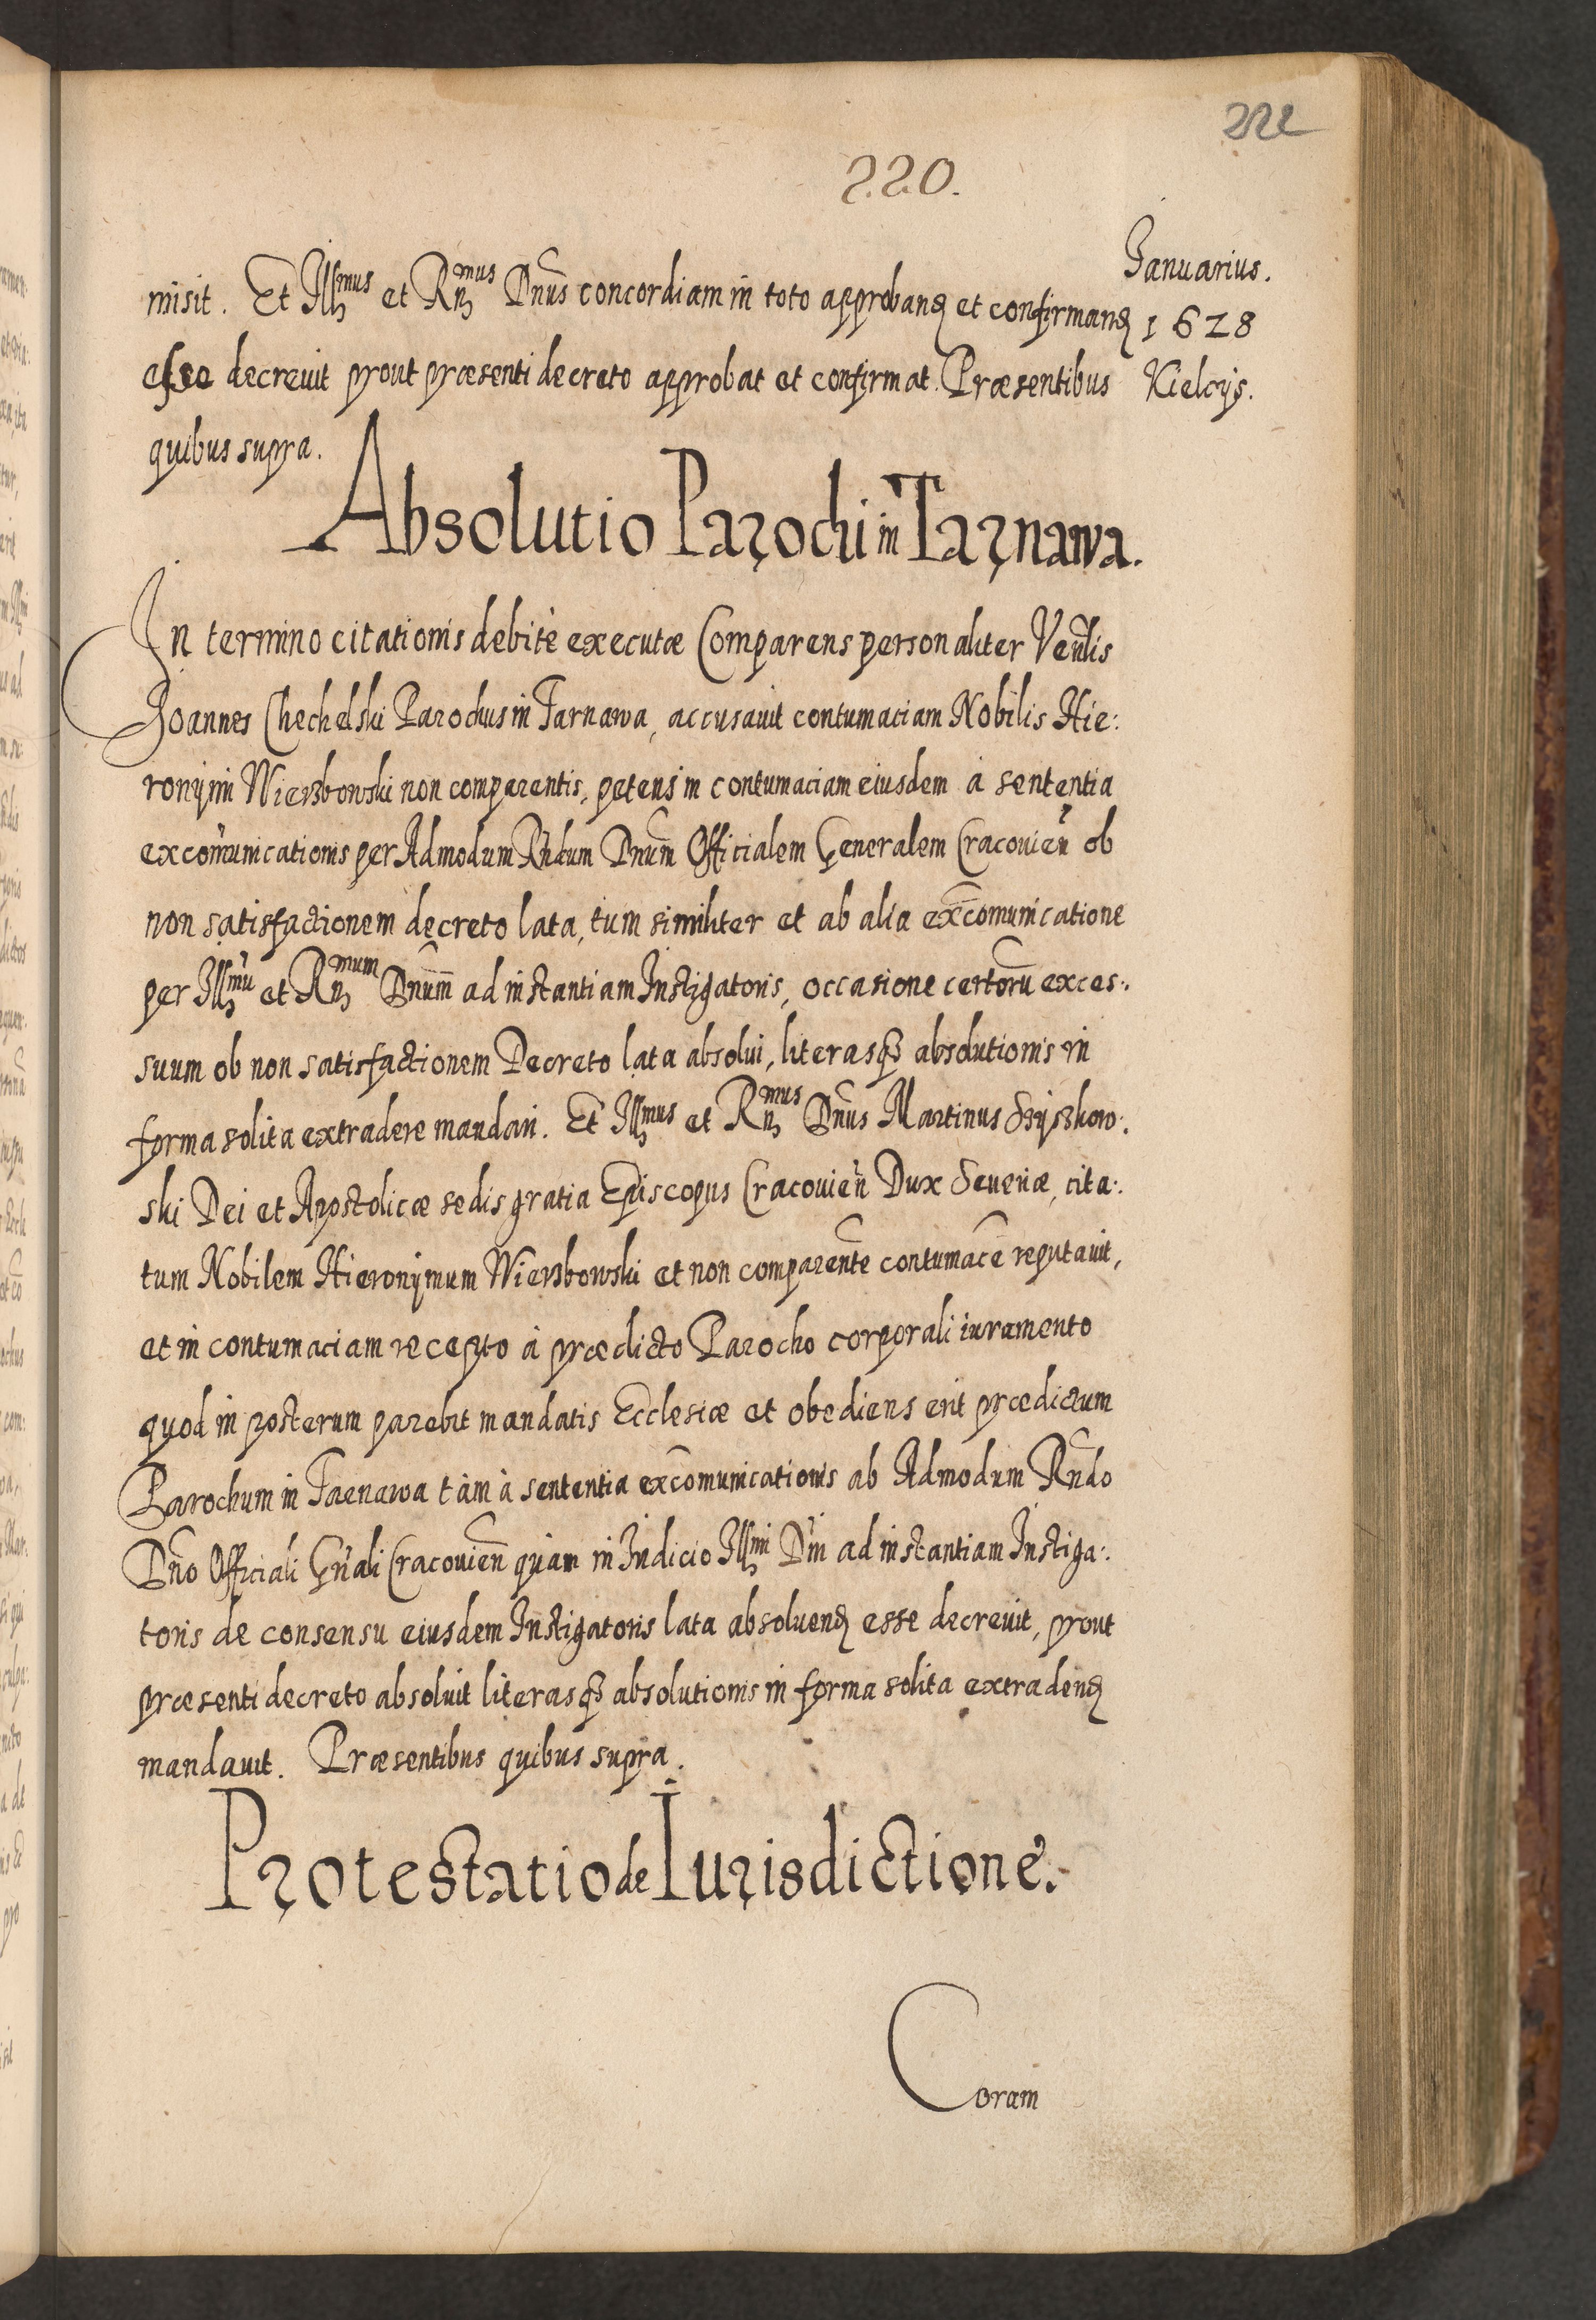 222
220.
Januarius.
1628
Kielcÿs.
misit. Et Illmus et Rnmus Dnus concordiam in toto approband et confirmand
esse decrevit prout præsenti decreto approbat et confirmat. Præsentibus
quibus supra.
Absolutio Parochi in Tarnawa.
In termino citationis debitè executæ Comparens personaliter Venlis
Joannes Chechelski Parochus in Tarnawa, accusavit contumaciam Nobilis Hie:
ronÿmi Wierzbowski non comparentis, petens in contumaciam eiusdem à sententia
excomunicationis per Admodum Rndum Dnum Officialem Generalem Cracovien ob
non satisfactionem decreto lata, tum similiter et ab alia excomunicatione
per Illmu et Rnmum Dnum ad instantiam Instigatoris, occasione certoru exces:
suum ob non satisfactionem Decreto lata absolui, literasq absolutionis in
forma solita extradere mandari. Et Illmus et Rnmus Dnus Martinus Szÿszkow:
ski Dei et Apostolicæ sedis gratia Episcopus Cracouien Dux Seueriæ, cita:
tum Nobilem Hieronÿmum Wierzbowski et non comparente contumace reputauit,
et in contumaciam recepto à prædicto Parocho corporali iuramento
quod in posterum parebit mandatis Ecclesiæ et obediens erit prædictum
Parochum in Taenawa tàm à sententia excomunicationis ab Admodum Rndo
Dno Officiali Gnali Cracouien quàm in Iudicio Illmi Dni ad instantiam Instiga:
toris de consensu eiusdem Instigatoris lata absoluend esse decreuit, prout
præsenti decreto absoluit literasq absolutionis in forma solita extradend
mandauit. Præsentibus quibus supra.
Protestatio de Iurisdictione.
Coram